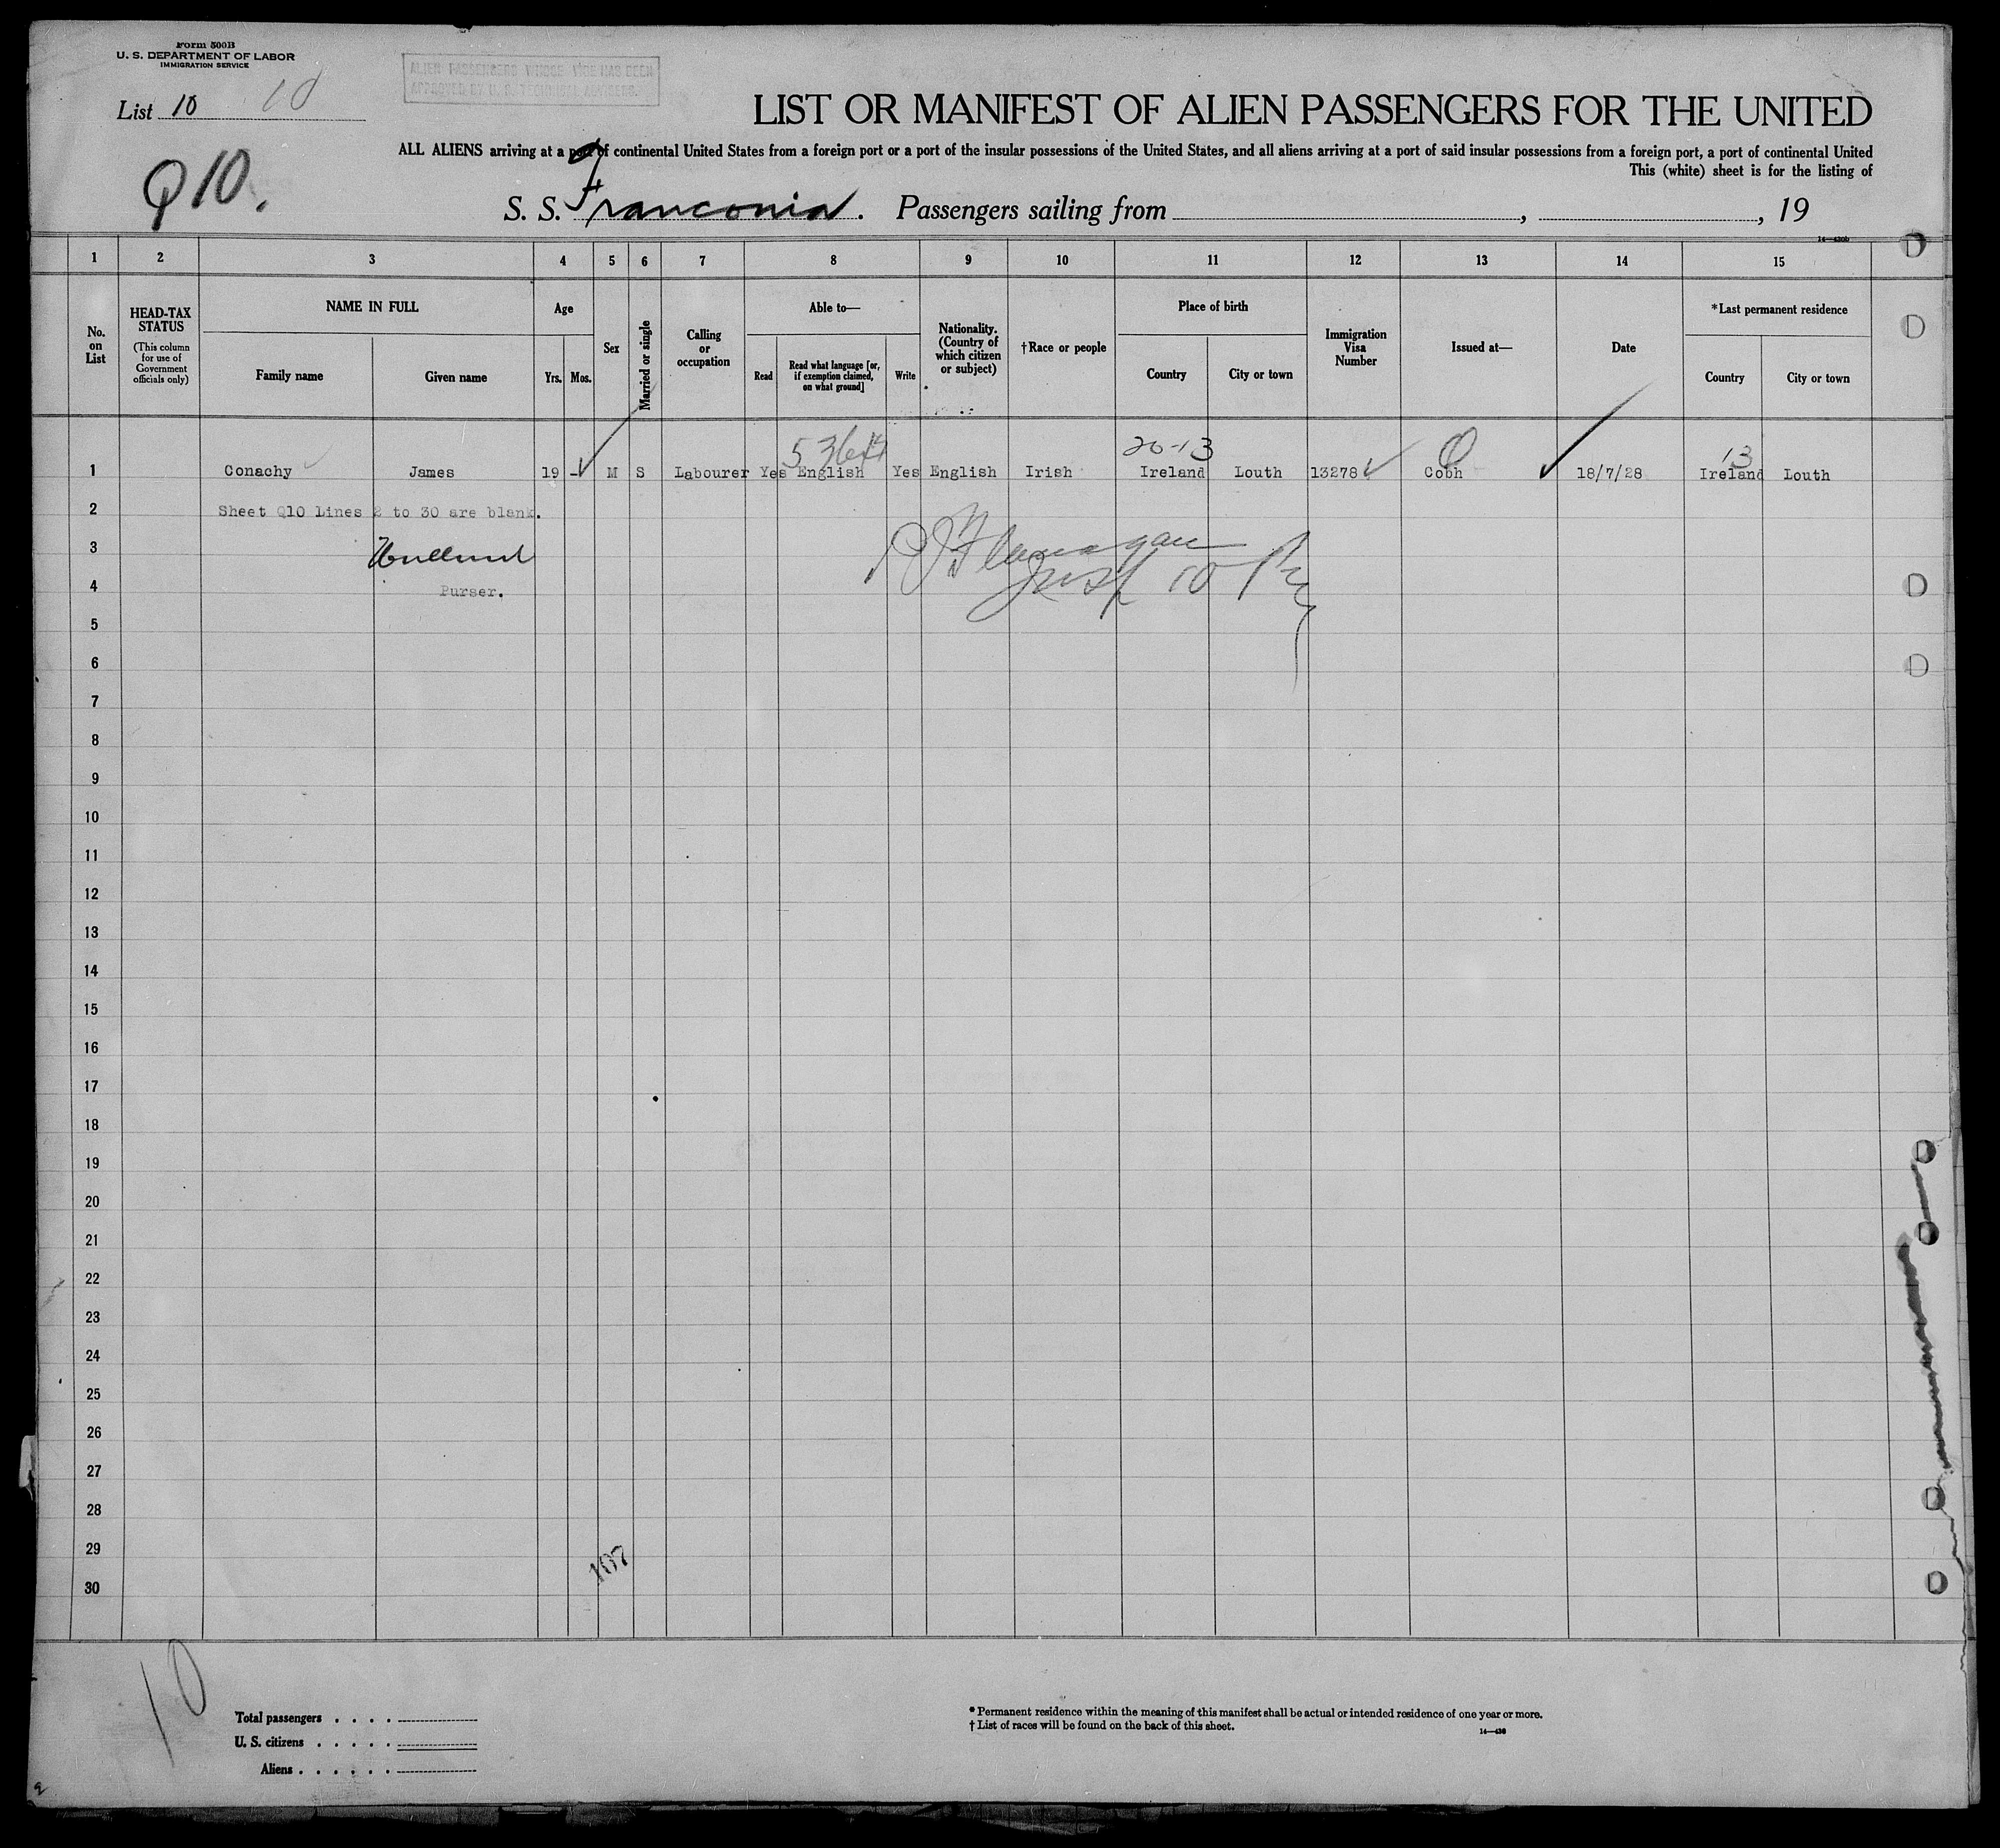 Form 500B
U. S. DEPARTMENT OF LABOR
IMMIGRATION SERVICE
ALIEN PASSENGERS WHOSE VISE HAS BEEN
APPROVED BY U. S. TECHNICAL ADVISERS.
List 10 10
LIST OR MANIFEST OF ALIEN PASSENGERS FOR THE UNITED
ALL ALIENS arriving at a port of continental United States from a foreign port or a port of the insular possessions of the United States, and all aliens arriving at a port of said insular possessions from a foreign port, a port of continental United
This (white) sheet is for the listing of
Q10.
S. S. Franconia. Passengers sailing from , , 19
14—430b
1 2 3 4 5 6 7 8 9 10 11 12 13 14 15
No. on List
HEAD-TAX STATUS
(This column for use of Government officials only)
NAME IN FULL
Family name Given name
Age
Yrs. Mos.
Sex
Married or single
Calling or occupation
Able to—
Read
Read what language [or, if exemption claimed, on what ground]
Write
Nationality. (Country of which citizen or subject)
†Race or people
Place of birth
Country City or town
Immigration Visa Number
Issued at—
Date
*Last permanent residence
Country City or town
20-13
13
1 Conachy James 19 - M S Labourer Yes English Yes English Irish Ireland Louth 13278 Cobh 18/7/28 Ireland Louth
2 Sheet Q10 Lines 2 to 30 are blank.
3 P J Flanagan
4 Purser. Insp 10
5
6
7
8
9
10
11
12
13
14
15
16
17
18
19
20
21
22
23
24
25
26
27
28
29
30
107
10
Total passengers . . . .
U. S. citizens . . . . .
Aliens . . . . . .
* Permanent residence within the meaning of this manifest shall be actual or intended residence of one year or more.
† List of races will be found on the back of this sheet.
14—430